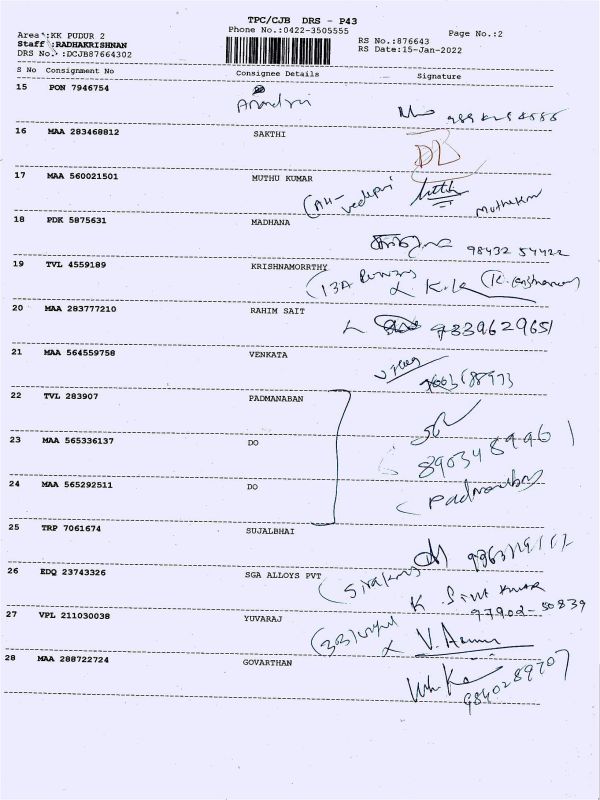 TPC/CJB DRS - P43
Phone No.:0422-3505555
Page No.:2
Area :KK PUDUR 2
Staff :RADHAKRISHNAN
DRS No. :DCJB87664302
RS No.:876643
RS Date:15-Jan-2022
S No Consignment No Consignee Details Signature
15 PON 7946754
16 MAA 283468812 SAKTHI
17 MAA 560021501 MUTHU KUMAR
18 PDK 5875631 MADHANA
98432 54422
19 TVL 4559189 KRISHNAMORRTHY
20 MAA 283777210 RAHIM SAIT
9839629651
21 MAA 564559758 VENKATA
22 TVL 283907 PADMANABAN
23 MAA 565336137 DO
8903489961
24 MAA 565292511 DO
25 TRP 7061674 SUJALBHAI
26 EDQ 23743326 SGA ALLOYS PVT
97902-50839
27 VPL 211030038 YUVARAJ
28 MAA 288722724 GOVARTHAN
9840289707